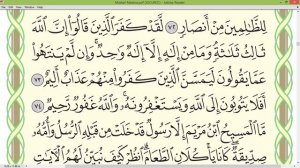 لِلظَّٰلِمِينَ مِنْ أَنصَارٍ ٧٢ لَّقَدْ كَفَرَ ٱلَّذِينَ قَالُوٓا۟ إِنَّ ٱللَّهَ
ثَالِثُ ثَلَٰثَةٍ وَمَا مِنْ إِلَٰهٍ إِلَّآ إِلَٰهٌ وَٰحِدٌ وَإِن لَّمْ يَنتَهُوا۟
عَمَّا يَقُولُونَ لَيَمَسَّنَّ ٱلَّذِينَ كَفَرُوا۟ مِنْهُمْ عَذَابٌ أَلِيمٌ ٧٣
أَفَلَا يَتُوبُونَ إِلَى ٱللَّهِ وَيَسْتَغْفِرُونَهُۥ وَٱللَّهُ غَفُورٌ رَّحِيمٌ ٧٤
مَّا ٱلْمَسِيحُ ٱبْنُ مَرْيَمَ إِلَّا رَسُولٌ قَدْ خَلَتْ مِن قَبْلِهِ ٱلرُّسُلُ وَأُمُّهُۥ
صِدِّيقَةٌ كَانَا يَأْكُلَانِ ٱلطَّعَامَ ٱنظُرْ كَيْفَ نُبَيِّنُ لَهُمُ ٱلْءَايَٰتِ